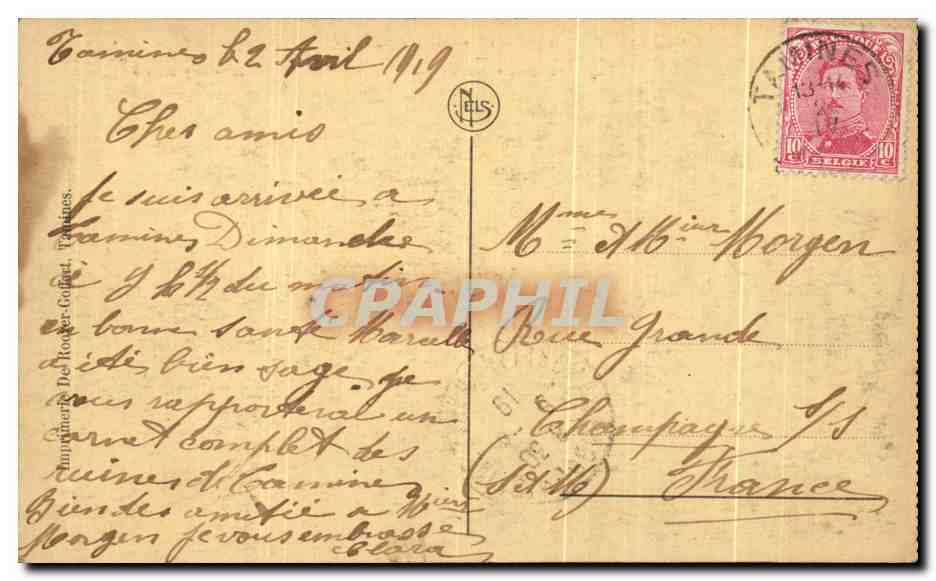 Tamines le 2 Avril 1919
Cher amis
Je suis arrivée a
Tamines Dimanche
a 9 h 1/2 du matin
en bonne santé Marcelle
a été bien sage je
vous rapporterai un
carnet complet des
ruines de Tamines
Bien des amitié a Mieur
Morgen Je vous embrasse
Clara
Imprimerie De Rooner-Coffart, Tamines.
NELS
TAMINES
13-14
BELGIE
10 c
10 c
Mme & Mieur Morgen
Rue Grande
Champagne S/S
(S & M) France
CPARHIL